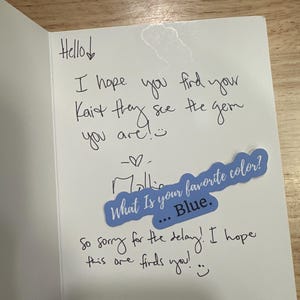 Hello!
I hope you find your
Kait they see the gem
you are!
Mollie
What Is your favorite color?
... Blue.
so sorry for the delay! I hope
this one finds you!